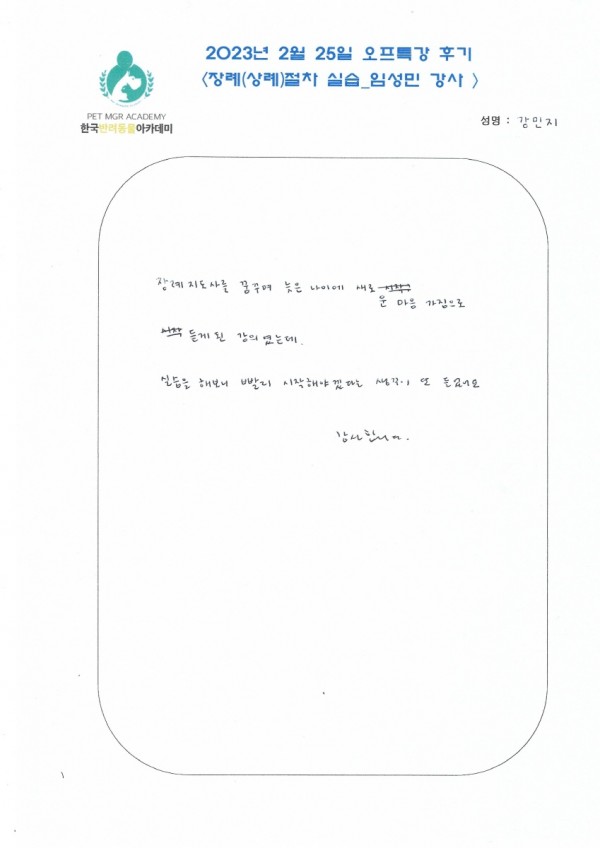 2023년 2월 25일 오프특강 후기
<장례(상례)절차 실습_임성민 강사 >
PET MGR ACADEMY
한국반려동물아카데미
성명 : 강민지
장례지도사를 꿈꾸며 늦은 나이에 새로
운 마음 가짐으로
듣게된 강의였는데.
실습을 해보니 빨리 시작해야겠다는 생각이 또 드네요
감사합니다.